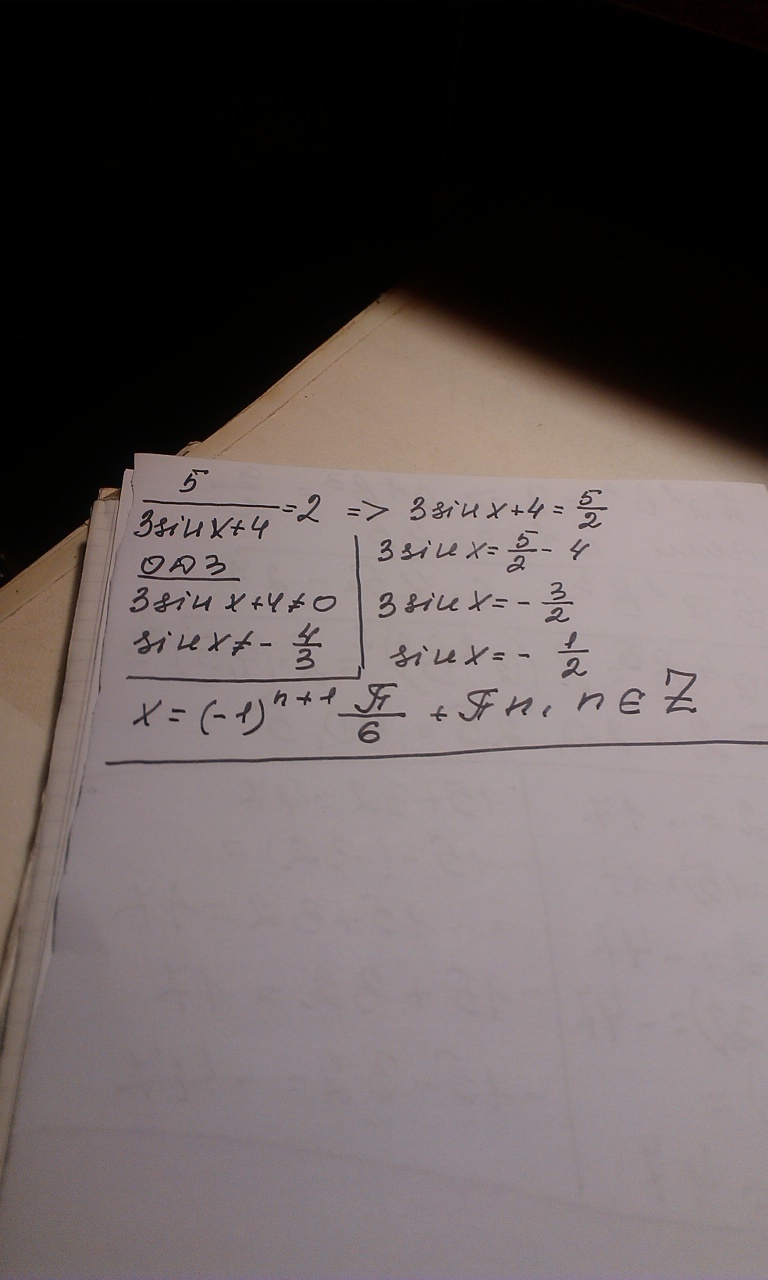 5/(3sinx+4) =2 => 3sinx+4 = 5/2
ОДЗ
3sinx+4≠0
sinx≠- 4/3
3sinx= 5/2 - 4
3sinx= - 3/2
sinx= - 1/2
x = (-1)^(n+1) π/6 + πn, n∈Z